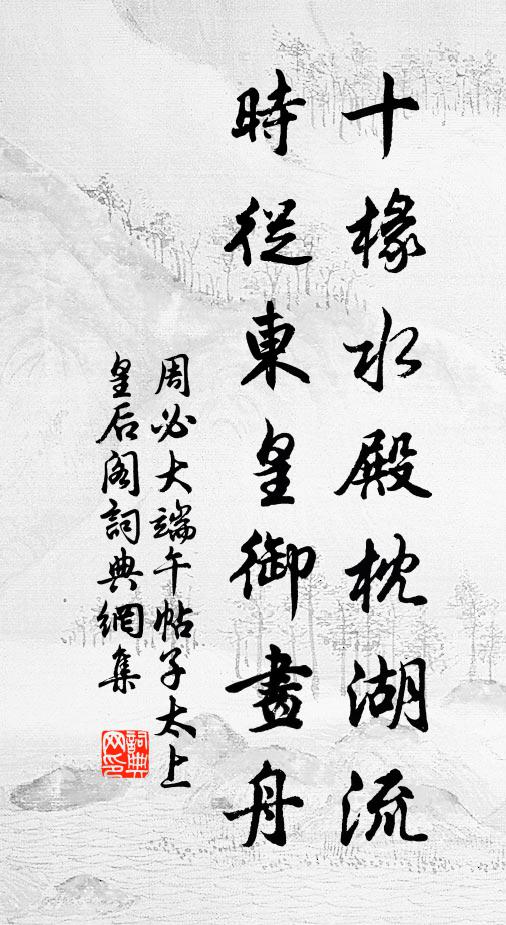 十椽水殿枕湖流
時從東皇御畫舟
周必大端午帖子太上
皇后阁詞典網集
詞典網印